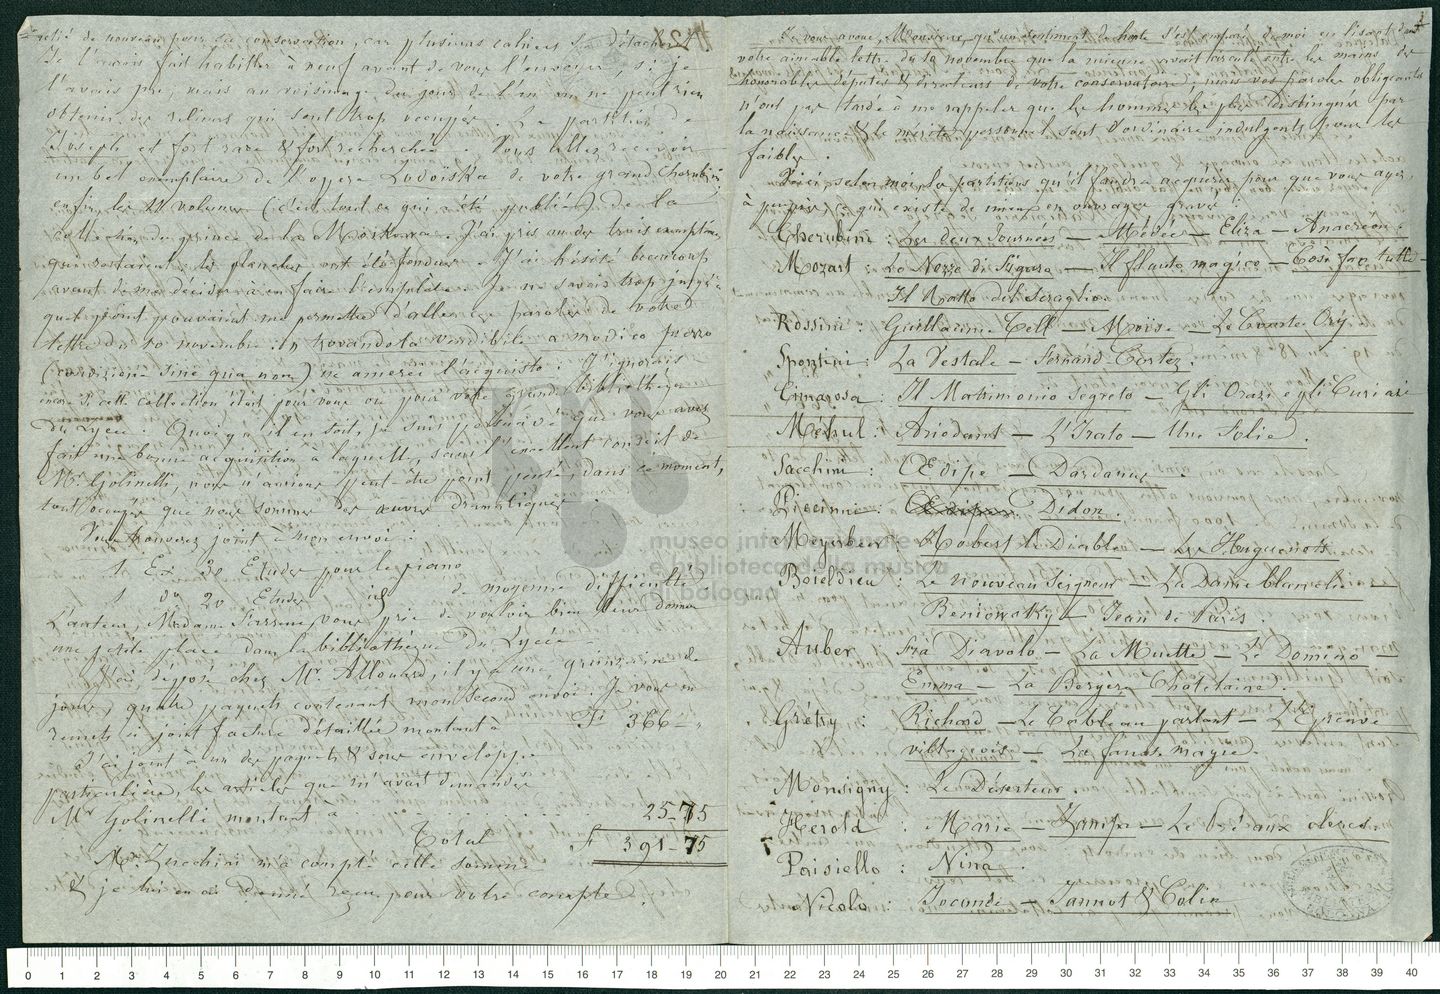 relié de nouveau pour sa conservation, car plusieurs cahiers se détachent.
Je l'aurais fait habiller à neuf avant de vous l'envoyer, si je
l'avais pu; mais au voisinage du jour de l'an on ne peut rien
obtenir des relieurs qui sont trop occupés. La partition de
Joseph est fort rare & fort recherchée. Vous allez recevoir
un bel exemplaire de l'opera Lodoïska de votre grand Cherubini
enfin, les 11 volumes (c'est tout ce qui a été publié) de la
Collection du prince de la Moskowa. J'ai pris un des trois exemplaires
qui restaient, les planches ont été fondues. J'ai hésité beaucoup
avant de me décider à en faire l'emplète. Je ne savais trop jusqu'à
quel point pouvaient me permettre d'aller les paroles de votre
lettre du 10 novembre: trovandola vendibile a modico prezzo
(condizione sine qua non) ne amerei l'acquisto. J'ignorais
encore si cette collection était pour vous ou pour votre grande bibliothèque
du Lycée. Quoiqu'il en soit, je suis persuadé que vous avez
fait une bonne acquisition à laquelle, sans l'excellent conseil de
Mr. Golinelli, nous n'aurions peut-être point pensé dans ce moment,
tout occupés que nous sommes des œuvres dramatiques.
Vous trouverez joint à mon envoi:
1 Ex 30 Etudes pour le piano
1 do 20 Etudes id de moyenne difficulté
L'auteur, Madame Farrenc vous prie de vouloir bien leur donner
une petite place dans la bibliothèque du Lycée.
J'ai déposé chez Mr. Allouard, il y a une quinzaine de
jours, quatre paquets contenant mon second envoi. Je vous en
remets ci joint facture détaillée montant à Fr 366 — "
J'ai joint à un des paquets & sous enveloppe
particulière, les articles que m'avait demandés
Mr Golinelli montant à 25-75
Total F 391-75
Mr. Zucchini m'a compté cette somme
& je lui en ai donné reçu pour votre compte.
Je vous avoue, Monsieur, qu'un sentiment de honte s'est emparé de moi en lisant dans
votre aimable lettre du 19 novembre que la mienne avait circulé entre les mains des
honorables députés & directeurs de votre conservatoire; mais vos paroles obligeantes
n'ont pas tardé à me rappeler que les hommes les plus distingués par
la naissance & le mérite personnel sont d'ordinaire indulgents pour les
faibles.
Voici, selon moi, les partitions qu'il faudra acquérir pour que vous ayez,
à peu près, ce qui existe de mieux en ouvrages gravés:
Cherubini: Les deux Journées — Médée — Eliza — Anacréon.
Mozart: Le Nozze di Figaro — Il flauto magico — Così fan tutte —
Il Ratto del Seraglio
Rossini: Guillaume Tell — Moïse — Le Comte Ory
Spontini: La Vestale — Fernand Cortez.
Cimarosa: Il Matrimonio Segreto — Gli Orazi e gli Curiazi
Méhul: Ariodant — L'Irato — Une Folie.
Sacchini: Œdipe — Dardanus.
Piccinni: Didon.
Meyerbeer: Robert le Diable — Les Huguenots
Boieldieu: Le nouveau Seigneur — La Dame blanche —
Beniowsky — Jean de Paris.
Auber Fra Diavolo — La Muette — Le Domino —
Emma — La Bergère Châtelaine.
Grétry: Richard — Le Tableau parlant — L'Epreuve
villageoise — La fausse magie.
Monsigny: Le Déserteur.
Herold: Marie — Zampa — Le Pré aux clercs.
Paisiello: Nina.
Nicolo: Joconde — Jannot & Colin
museo internazionale
e biblioteca della musica
di bologna
0 1 2 3 4 5 6 7 8 9 10 11 12 13 14 15 16 17 18 19 20 21 22 23 24 25 26 27 28 29 30 31 32 33 34 35 36 37 38 39 40